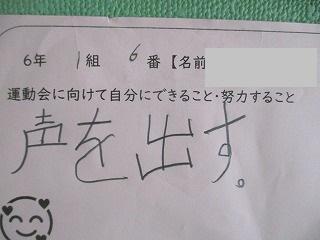 6年 1組 6番【名前
運動会に向けて自分にできること・努力すること
声を出す。